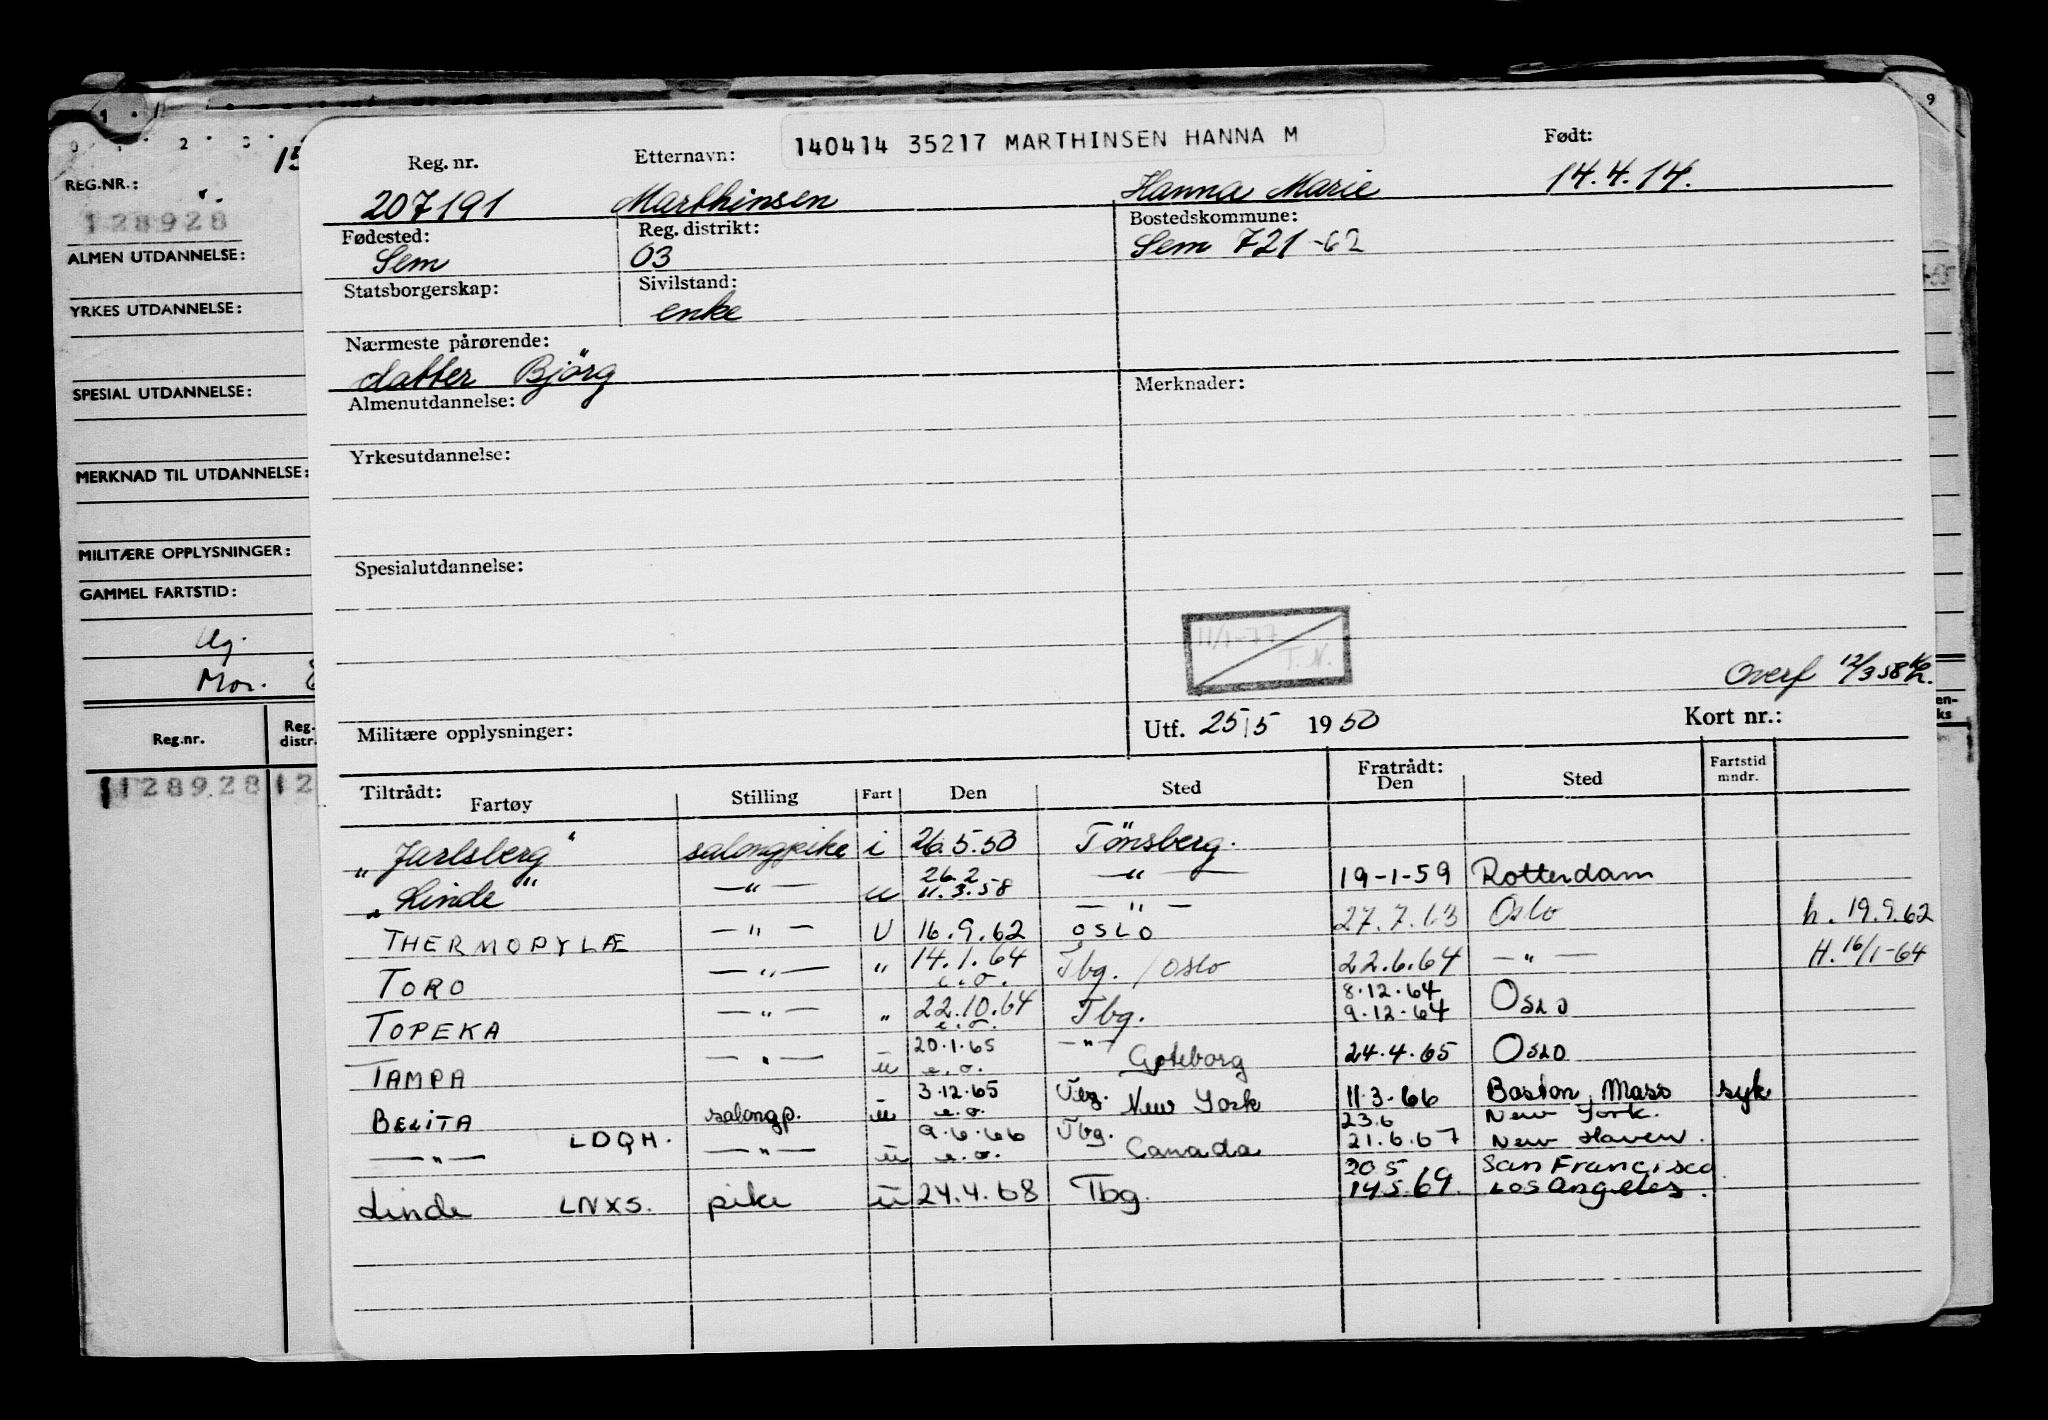 1 9
0 1 2 3
15
REG.NR.:
128928
ALMEN UTDANNELSE:
YRKES UTDANNELSE:
SPESIAL UTDANNELSE:
MERKNAD TIL UTDANNELSE:
MILITÆRE OPPLYSNINGER:
GAMMEL FARTSTID:
Mor.
Reg.nr. Reg. distr.
128928 12
140414 35217 MARTHINSEN HANNA M
Reg. nr. Etternavn: Født:
207191 Marthinsen Hanna Marie 14.4.14.
Fødested: Reg. distrikt: Bostedskommune:
Sem 03 Sem 721-62
Statsborgerskap: Sivilstand:
enke
Nærmeste pårørende:
datter Björg
Almenutdannelse: Merknader:
Yrkesutdannelse:
Spesialutdannelse:
11/1-77
T.N.
Overf 12/3 58
Militære opplysninger: Utf. 25/5 1950 Kort nr.:
Tiltrådt: Fartøy Stilling Fart Den Sted Fratrådt: Den Sted Fartstid mndr.
"Jarlsberg" salongpike i 26.5.50 Tönsberg.
"Linde" —"— u 26.2 11.3.58 —"— 19-1-59 Rotterdam
THERMOPYLÆ —"— U 16.9.62 —"— OSLO 27.7.63 Oslo h. 19.9.62
TORO —"— " 14.1.64 e.o. Tbg. / Oslo 22.6.64 —"— H. 16/1-64
TOPEKA —"— " 22.10.64 e.o. Tbg. 8.12.64 9.12.64 OSLO
TAMPA —"— u 20.1.65 e.o. —"— Gøteborg 24.4.65 OSLO
BELITA salongp. u 3.12.65 e.o. Tbg. New York 11.3.66 Boston, Mass syk
—"— LDQH. —"— u 9.6.66 e.o. Tbg. Canada 23.6 21.6.67 New York. New Haven.
Linde LNXS. pike u 24.4.68 Tbg. 20.5 19.5.69. San Francisco Los Angeles.